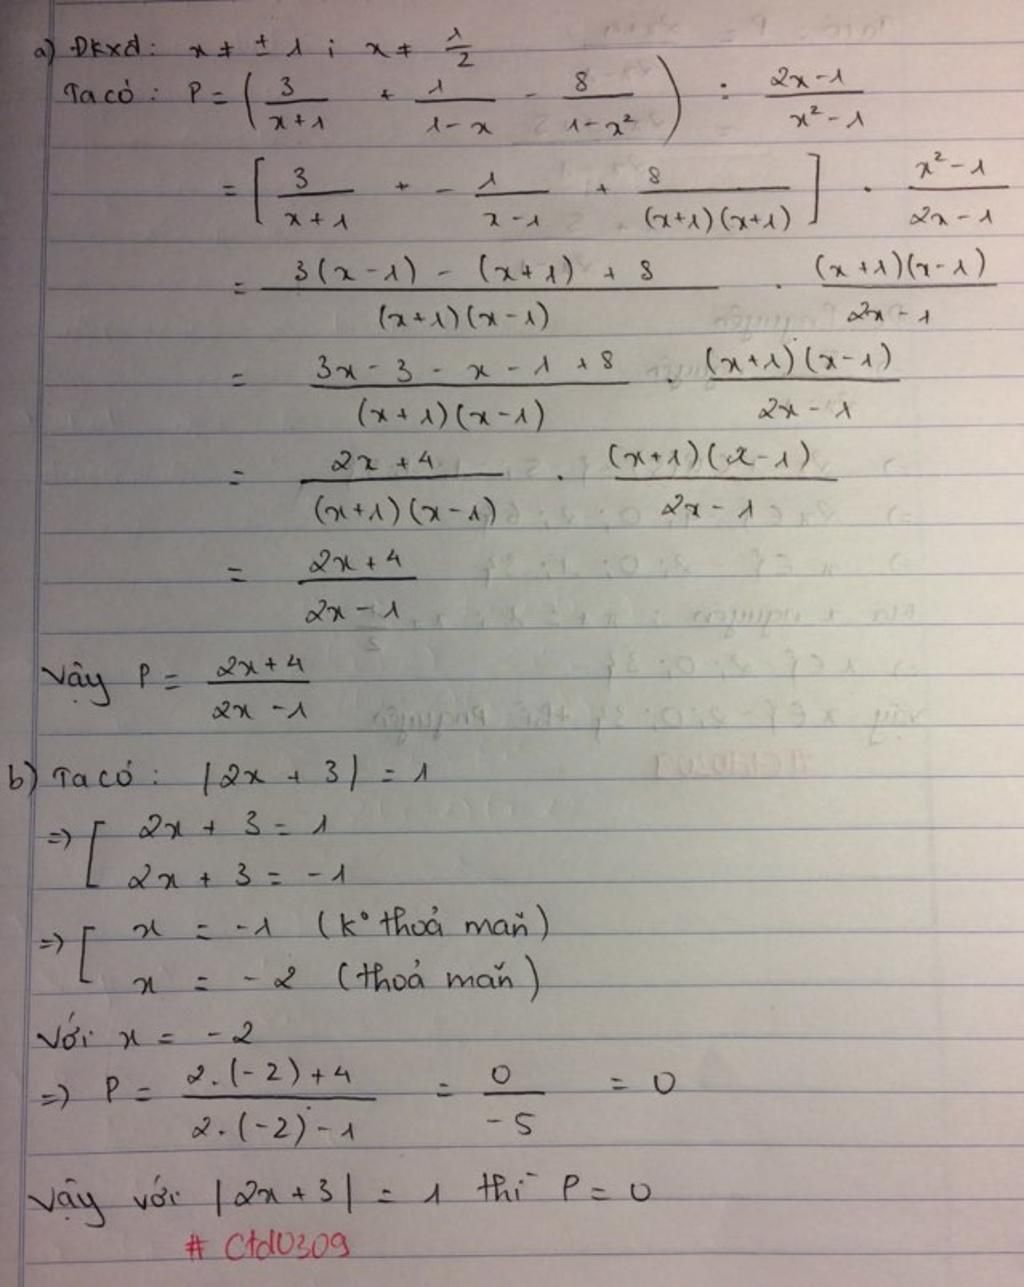 a) ĐKXĐ: x ≠ ± 1 ; x ≠ 1/2
Ta có: P = ( 3/(x+1) + 1/(1-x) - 8/(1-x²) ) : (2x-1)/(x²-1)
= [ 3/(x+1) + - 1/(x-1) + 8/((x+1)(x+1)) ] . (x²-1)/(2x-1)
= (3(x-1) - (x+1) + 8)/((x+1)(x-1)) . ((x+1)(x-1))/(2x-1)
= (3x-3-x-1+8)/((x+1)(x-1)) . ((x+1)(x-1))/(2x-1)
= (2x+4)/((x+1)(x-1)) . ((x+1)(x-1))/(2x-1)
= (2x+4)/(2x-1)
Vậy P = (2x+4)/(2x-1)
b) Ta có: |2x + 3| = 1
=> [ 2x + 3 = 1
2x + 3 = -1
=> [ x = -1 (k° thoả mãn)
x = -2 (thoả mãn)
Với x = -2
=> P = (2.(-2)+4)/(2.(-2)-1) = 0/-5 = 0
Vậy với |2x+3| = 1 thì P = 0
# Ctd0309